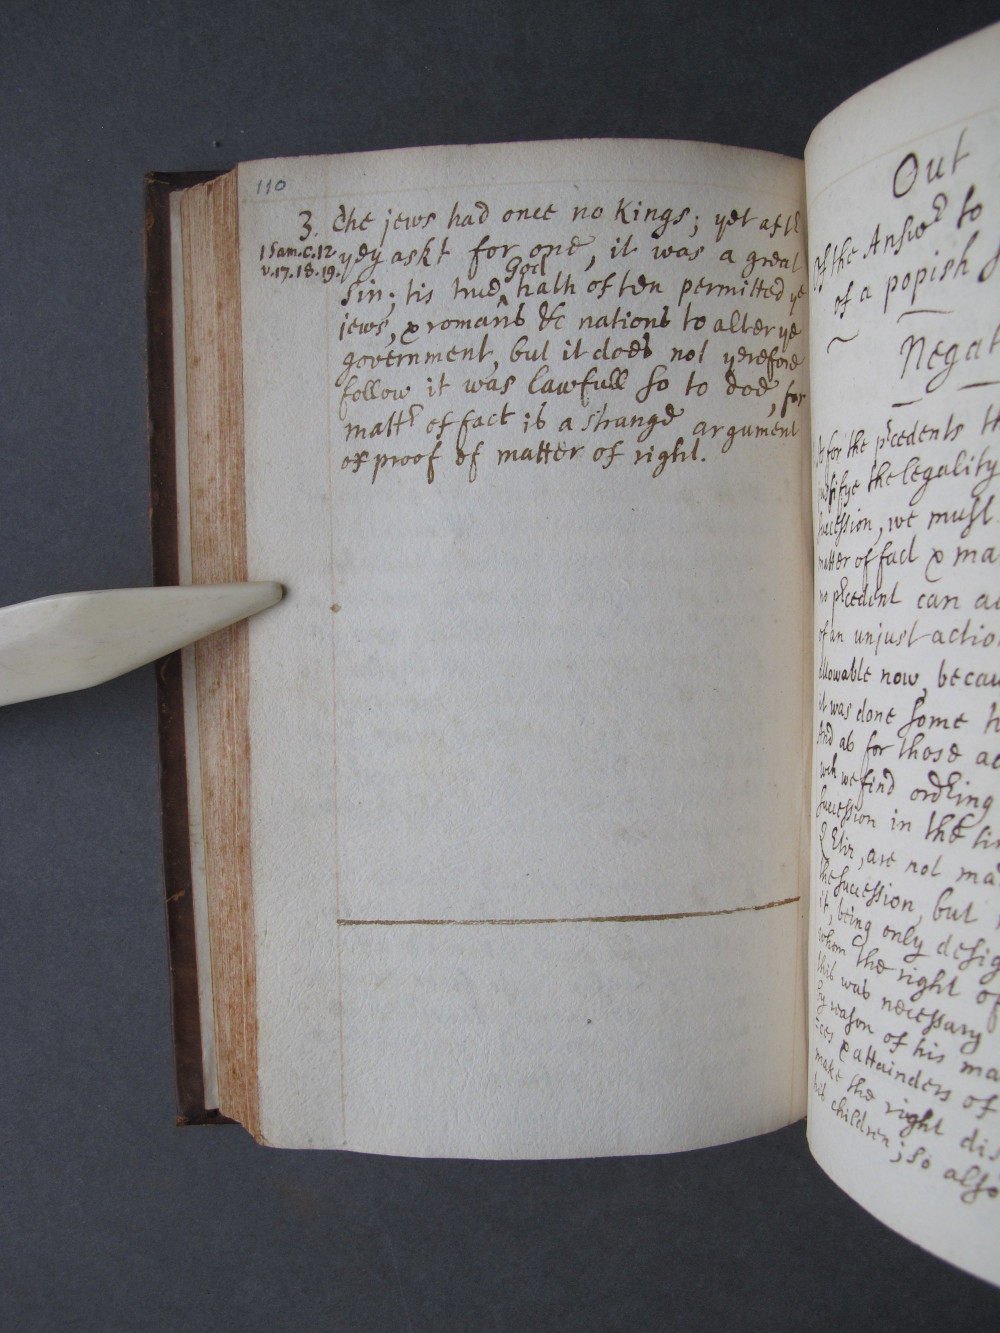 110
3. The jews had once no Kings; yet aftr
1 Sam. C. 12
v. 17. 18. 19.
yey askt for one, it was a great
God
sin; tis true ^ hath often permitted ye
jews, & romans &c nations to alter ye
government, but it does not yerefore
follow it was lawfull so to doe, for
mattr of fact is a strange argument
or proof of matter of right.
Out
Of the Answr to
of a popish
Negat
As for the prcedents th
justifye the legality
succession, we must
matter of fact & ma
no prcedent can au
of an unjust actio
allowable now, becau
it was done some h
And as for those ac
wch we find ordring
succession in the tim
Q Eliz, are not ma
the succession, but
it, being only desig
whom the right of
this was necessary
by reason of his ma
& attainders of
make the right dis
his children; so also